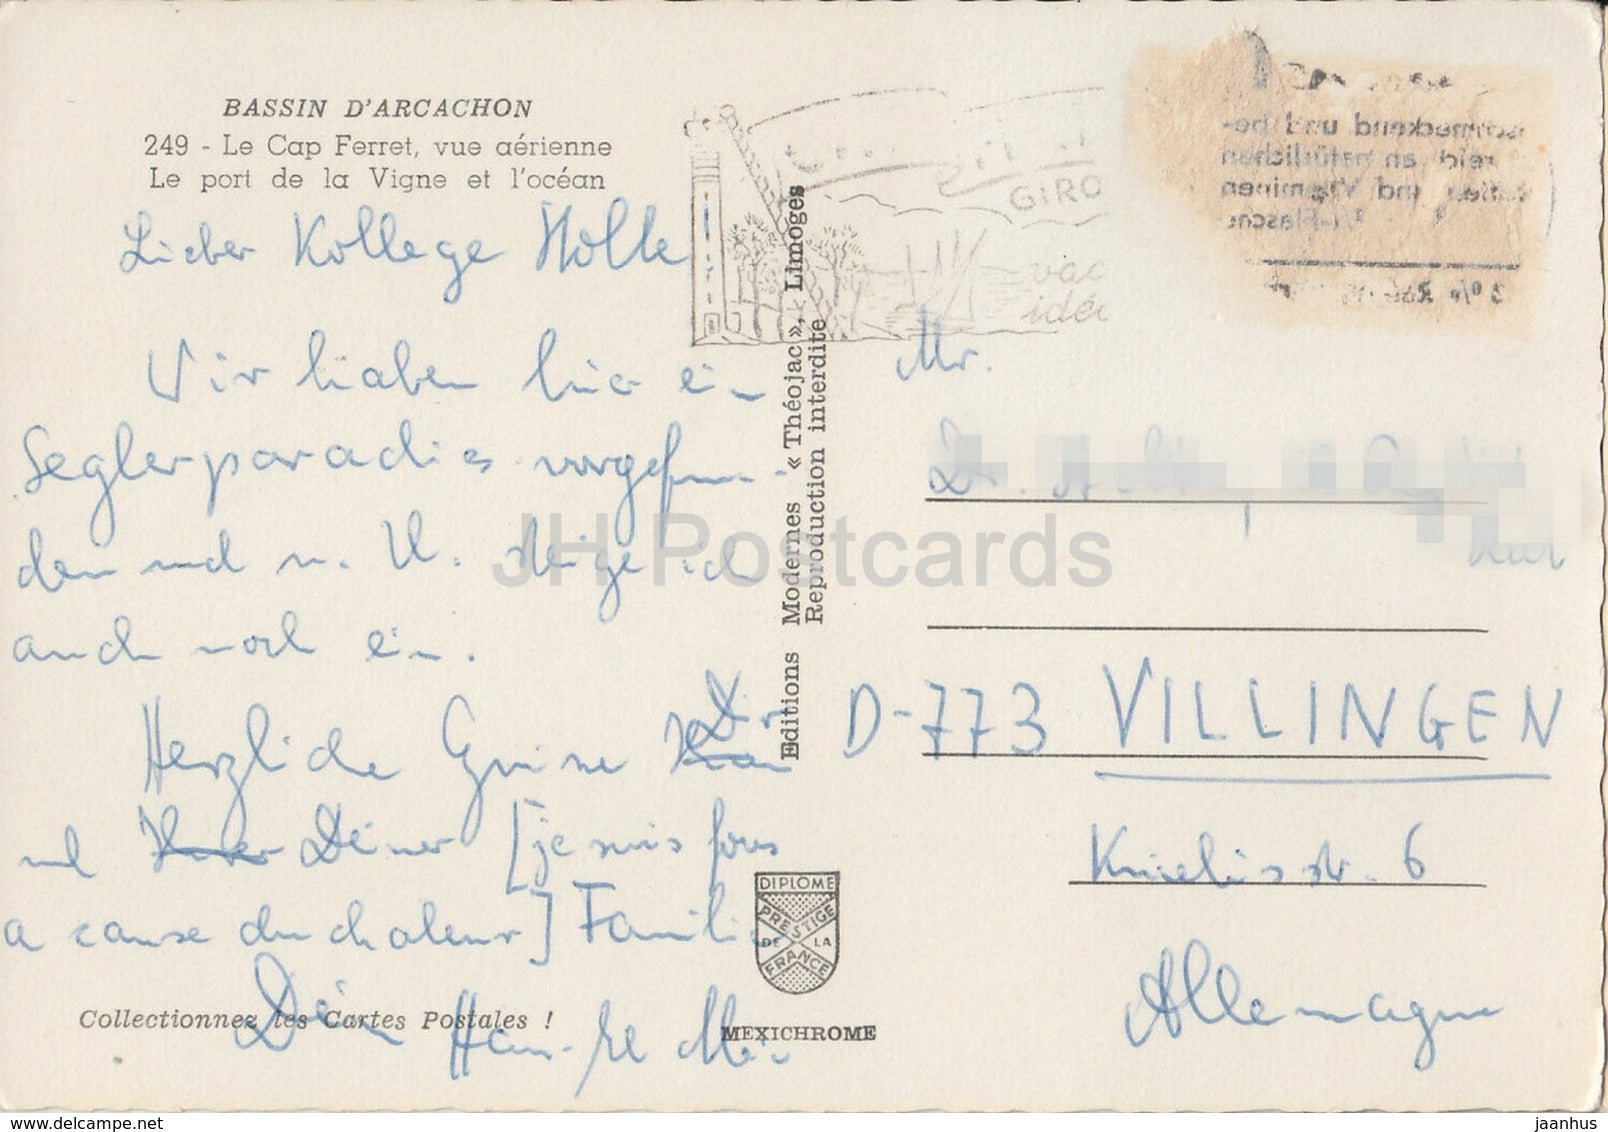 BASSIN D'ARCACHON
249 - Le Cap Ferret, vue aérienne
Le port de la Vigne et l'océan
Lieber Kollege Holle!
Wir haben hier ein
Seglerparadies vorgefun-
den und m. U. steige ich
auch noch ein.
Herzliche Grüsse Dir
und Deiner [je suis fous
a cause du chaleur] Familie
Dein
Collectionnez les Cartes Postales !
Editions Modernes « Théojac », Limoges
Reproduction interdite
DIPLOME
PRESTIGE
DE LA
FRANCE
MEXICHROME
GIRO
vac
idé
schmeckend und be-
reich an natürlichen
und Vitaminen
Mr.
Dr.
D-773 VILLINGEN
6
Allemagne
JH Postcards
www.delcampe.net
jaanhus